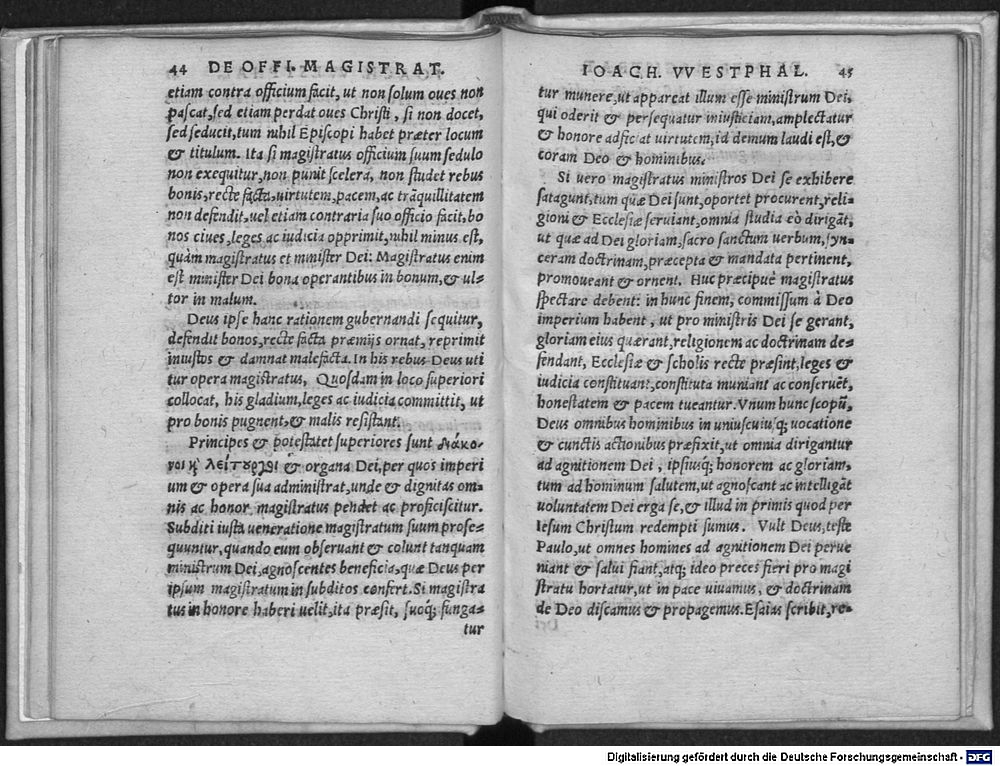 44 DE OFFI. MAGISTRAT.
etiam contra officium facit, ut non solum oues non
pascat, sed etiam perdat oues Christi, si non docet,
sed seducit, tum nihil Episcopi habet præter locum
& titulum. Ita si magistratus officium suum sedulo
non exequitur, non punit scelera, non studet rebus
bonis, recte factā, uirtutem, pacem, ac trāquillitatem
non defendit, uel etiam contraria suo officio facit, bo
nos ciues, leges ac iudicia opprimit, nihil minus est,
quàm magistratus et minister Dei: Magistratus enim
est minister Dei bona operantibus in bonum, & ul-
tor in malum.
Deus ipse hanc rationem gubernandi sequitur,
defendit bonos, recte facta præmijs ornat, reprimit
iniustos & damnat malefacta. In his rebus Deus uti
tur opera magistratus, Quosdam in loco superiori
collocat, his gladium, leges ac iudicia committit, ut
pro bonis pugnent, & malis resistant.
Principes & potestatet superiores sunt διάκο-
νοι ϗ λείτουργοι & organa Dei, per quos imperi
um & opera sua administrat, unde & dignitas om-
nis ac honor magistratus pendet ac proficiscitur.
Subditi iusta ueneratione magistratum suum prose-
quuntur, quando eum obseruant & colunt tanquam
ministrum Dei, agnoscentes beneficia, quæ Deus per
ipsum magistratum in subditos confert. Si magistra
tus in honore haberi uelit, ita præsit, suoq; funga-
tur
IOACH. VVESTPHAL. 45
tur munere, ut appareat illum esse ministrum Dei,
qui oderit & persequatur iniusticiam, amplectatur
& honore adficiat uirtutem, id demum laudi est, &
coram Deo & hominibus.
Si uero magistratus ministros Dei se exhibere
satagunt, tum quæ Dei sunt, oportet procurent, reli-
gioni & Ecclesiæ seruiant, omnia studia eò dirigāt,
ut quæ ad Dei gloriam, sacro sanctum uerbum, syn-
ceram doctrinam, præcepta & mandata pertinent,
promoueant & ornent. Huc præcipuè magistratus
spectare debent: in hunc finem, commissum à Deo
imperium habent, ut pro ministris Dei se gerant,
gloriam eius quærant, religionem ac doctrinam de-
fendant, Ecclesiæ & scholis recte præsint, leges &
iudicia constituant, constituta muniant ac conseruēt,
honestatem & pacem tueantur. Vnum hunc scopū,
Deus omnibus hominibus in uniuscuiusq; uocatione
& cunctis actionibus præfixit, ut omnia dirigantur
ad agnitionem Dei, ipsiusq; honorem ac gloriam,
tum ad hominum salutem, ut agnoscant ac intelligāt
uoluntatem Dei erga se, & illud in primis quod per
Iesum Christum redempti sumus. Vult Deus, teste
Paulo, ut omnes homines ad agnitionem Dei perue
niant & salui fiant, atq; ideo preces fieri pro magi
stratu hortatur, ut in pace uiuamus, & doctrinam
de Deo discamus & propagemus. Esaias scribit, re-
Digitalisierung gefördert durch die Deutsche Forschungsgemeinschaft - DFG